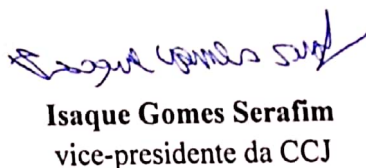 Isaque Gomes Seraf
Isaque Gomes Serafim
vice-presidente da CCJ